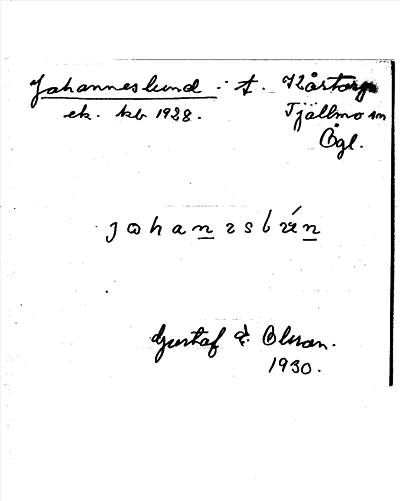 Johanneslund. t. Kårtorp
ek. kb 1928. Tjällmo sn
Ögl.
Gustaf Olsson.
1930.